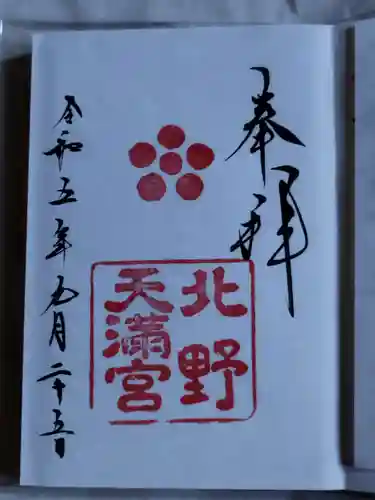 奉拝
北野
天満宮
令和五年九月二十五日